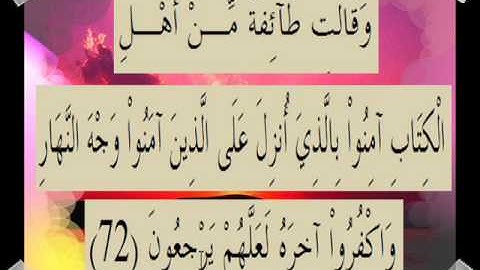 وَقَالَت طَّآئِفَةٌ مِّنْ أَهْلِ
الْكِتَابِ آمِنُواْ بِالَّذِيَ أُنزِلَ عَلَى الَّذِينَ آمَنُواْ وَجْهَ النَّهَارِ
وَاكْفُرُواْ آخِرَهُ لَعَلَّهُمْ يَرْجِعُونَ (72)